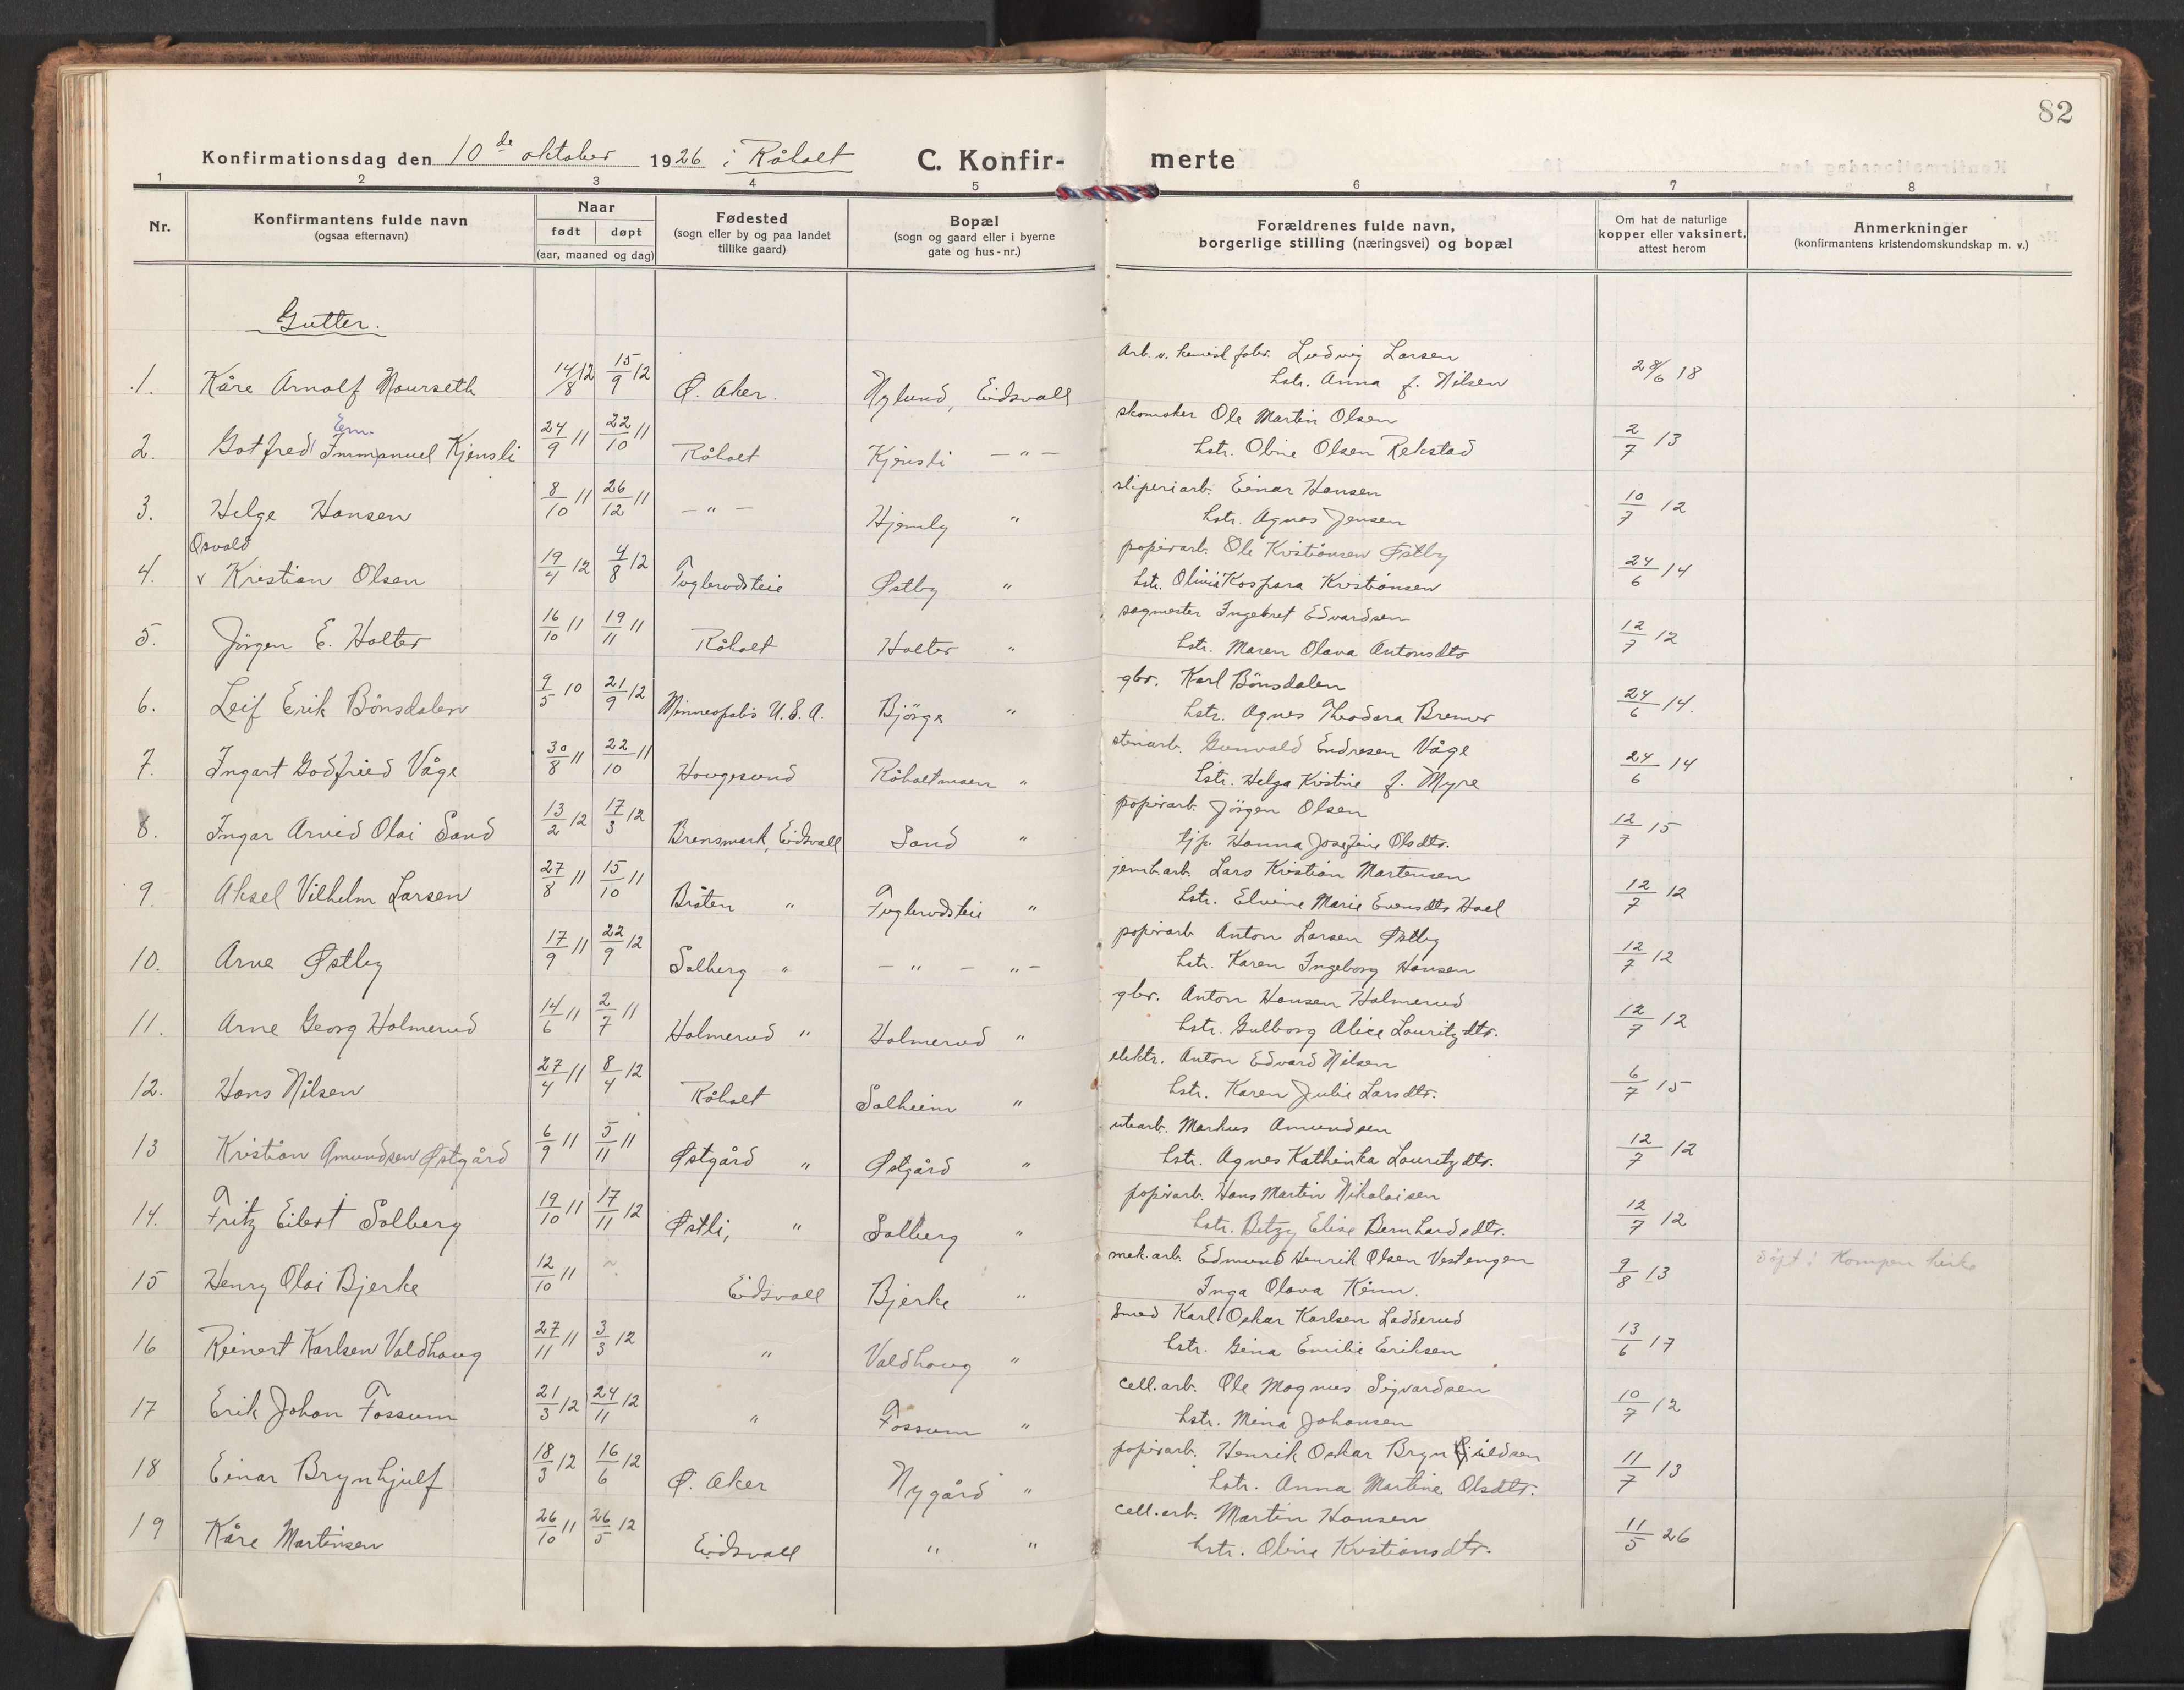 82
Konfirmationsdag den 10de oktober 1926 i Råholt C. Konfir- merte
1 2 3 4 5 6 7 8
Nr. Konfirmantens fulde navn (ogsaa efternavn) Naar født døpt (aar, maaned og dag) Fødested (sogn eller by og paa landet tillike gaard) Bopæl (sogn og gaard eller i byerne gate og hus-nr.) Forældrenes fulde navn, borgerlige stilling (næringsvei) og bopæl Om hat de naturlige kopper eller vaksinert, attest herom Anmerkninger (konfirmantens kristendomskundskap m. v.)
Gutter.
Arb. v. kemisk fabr. Ludvig Larsen
1. Kåre Arnolf Maurseth 14/8 12 15/9 12 Ø. Aker. Nylund, Eidsvoll hstr. Anna f. Nilsen 28/6 18
skomaker Ole Martin Olsen
Em.
2. Gotfred Immanuel Kjensli 24/9 11 22/10 11 Råholt Kjensli - " - hstr. Oline Olsen Rekstad 2/7 13
sliperiarb. Einar Hansen
3. Helge Hansen 8/10 11 26/12 11 - " - Hjemly " hstr. Agnes Jensen 10/7 12
Osvald
papirarb. Ole Kristiansen Østby
4. v Kristian Olsen 19/4 12 4/8 12 Fuglerudsteie Østby " hstr. Olivia Kaspara Kristiansen 24/6 14
sagmester Ingebret Edvardsen
5. Jörgen E. Holter 16/10 11 19/11 11 Råholt Holter " hstr. Maren Olava Antonsdtr 12/7 12
gbr. Karl Bönsdalen
6. Leif Erik Bönsdalen 9/5 10 21/9 12 Minneapolis U.S.A. Bjørge " hstr. Agnes Theodora Bremer 24/6 14.
stenarb. Gunvald Endresen Våge
7. Ingart Godfried Våge 30/8 11 22/10 11 Haugesund Råholtmoen " hstr. Helga Kristine f. Myre 24/6 14
papirarb. Jörgen Olsen
8. Ingar Arvid Olai Sand 13/2 12 17/3 12 Brensmork, Eidsvoll Sand " tjp. Hanna Josefine Olsdtr. 12/7 15
jernb.arb. Lars Kristian Martensen
9. Aksel Vilhelm Larsen 27/8 11 15/10 11 Bråten " Fuglerudsteie " hstr. Elvine Marie Evensdtr Hoel 12/7 12
papirarb Anton Larsen Østby
10. Arne Østby 17/9 11 22/9 12 Solberg " - " - " - hstr. Karen Ingeborg Hansen 12/7 12
gbr. Anton Hansen Holmerud
11. Arne Georg Holmerud 14/6 11 2/7 11 Holmerud " Holmerud " hstr. Gulborg Alice Lauritzdtr. 12/7 12
elektr. Anton Edvard Nilsen
12. Hans Nilsen 27/4 11 8/4 12 Råholt Solheim " hstr. Karen Julie Larsdtr. 6/7 15
utearb. Markus Amundsen
13 Kristian Amundsen Østgård 6/9 11 5/11 11 Østgård " Østgård " hstr. Agnes Kathinka Lauritzdtr. 12/7 12
papirarb. Hans Martin Nikolaisen
14. Fritz Eibert Solberg 19/10 11 17/11 12 Østli, " Solberg " hstr. Betzy Elise Bernhardsdtr. 12/7 12
mek.arb. Edmund Henrik Olsen Vestengen
15 Henry Olai Bjerke 12/10 11 Eidsvoll Bjerke " Inga Olava 9/8 13 döpt i kirke
Smed Karl Oskar Karlsen Ladderud
16 Reinert Karlsen Valdhaug 27/11 11 3/3 12 " Valdhaug " hstr. Gina Emilie Eriksen 13/6 17
cell.arb. Ole Magnus Sigvardsen
17 Erik Johan Fossum 21/3 12 24/11 12 " Fossum " hstr. Mina Johansen 10/7 12
papirarb. Henrik Oskar Brynhjuldsen
18 Einar Brynhjulf 18/3 12 16/6 12 Ø. Aker Nygård " hstr. Anna Martine Olsdtr. 11/7 13
cell.arb. Martin Hansen
19 Kåre Martinsen 26/10 11 26/5 12 Eidsvoll " " hstr. Oline Kristiansdtr. 11/5 26